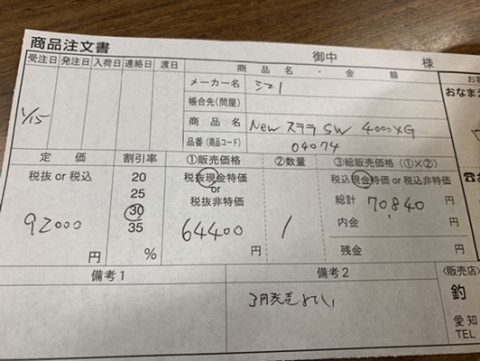 商品注文書
御中
様
受注日 発注日 入荷日 連絡日 渡日
商品名・金額
お客
メーカー名 シマノ
おなまえ
帳合先(問屋)
1/15
商品名 New ステラ SW 4000XG
品番(商品コード) 04074
定価 割引率 ①販売価格 ②数量 ③総販売価格(①×②)
税抜 or 税込 20 税抜現金特価 税込現金特価 or 税込非特価
25 or
税抜非特価
総計 70840 円
92000 円
30
64400 円
1
内金 円
35
% 
残金 円
備考1 備考2
〈販売店〉
3月発売よてい
釣
愛知
TEL